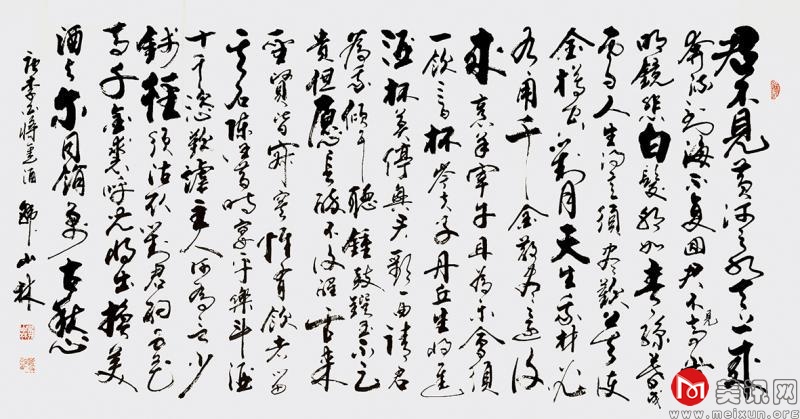 君不見黄河之水天上來
奔流到海不复回君不見高堂
明鏡悲白髮朝如青絲暮成
雪人生得意須尽歡莫使
金樽空對月天生我材必
有用千金散尽還復
來烹羊宰牛且為樂會須
一飲三百杯岑夫子丹丘生將進
酒杯莫停與君歌一曲請君
為我傾耳聽鐘鼓饌玉不足
貴但愿長醉不復醒古來
聖賢皆寂寞惟有飲者留
其名陳王昔時宴平樂斗酒
十千恣歡謔主人何為言少
錢徑須沽取對君酌五花
馬千金裘呼兒將出換美
酒與爾同銷萬古愁
唐李白將進酒 山林
美讯网
www.meixun.org